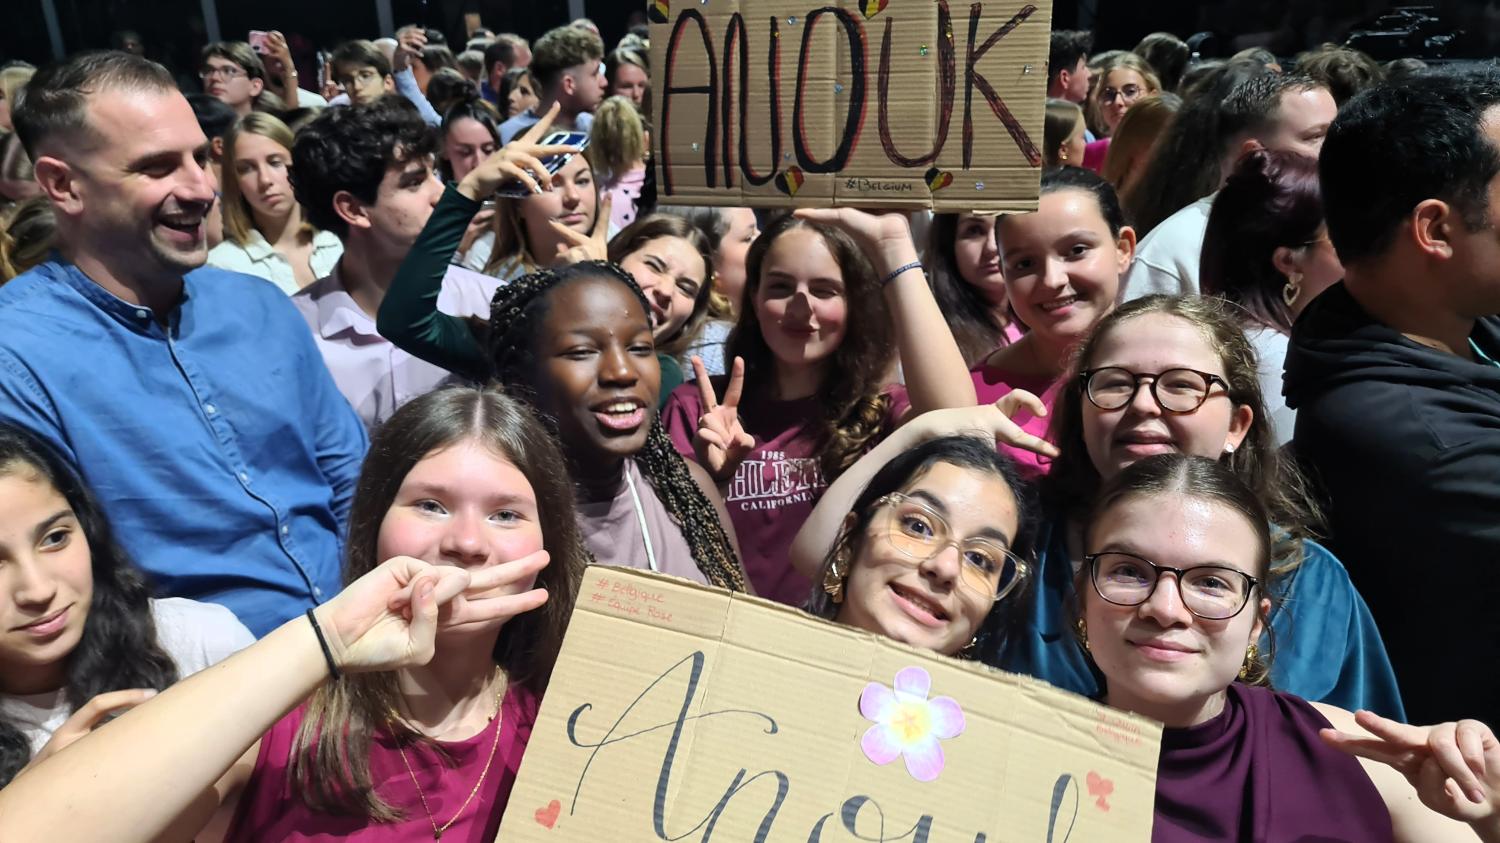 ANOUK
#BELGIUM
1985
CALIFORNIA
#Belgique
#Equipe Rose
Anouk